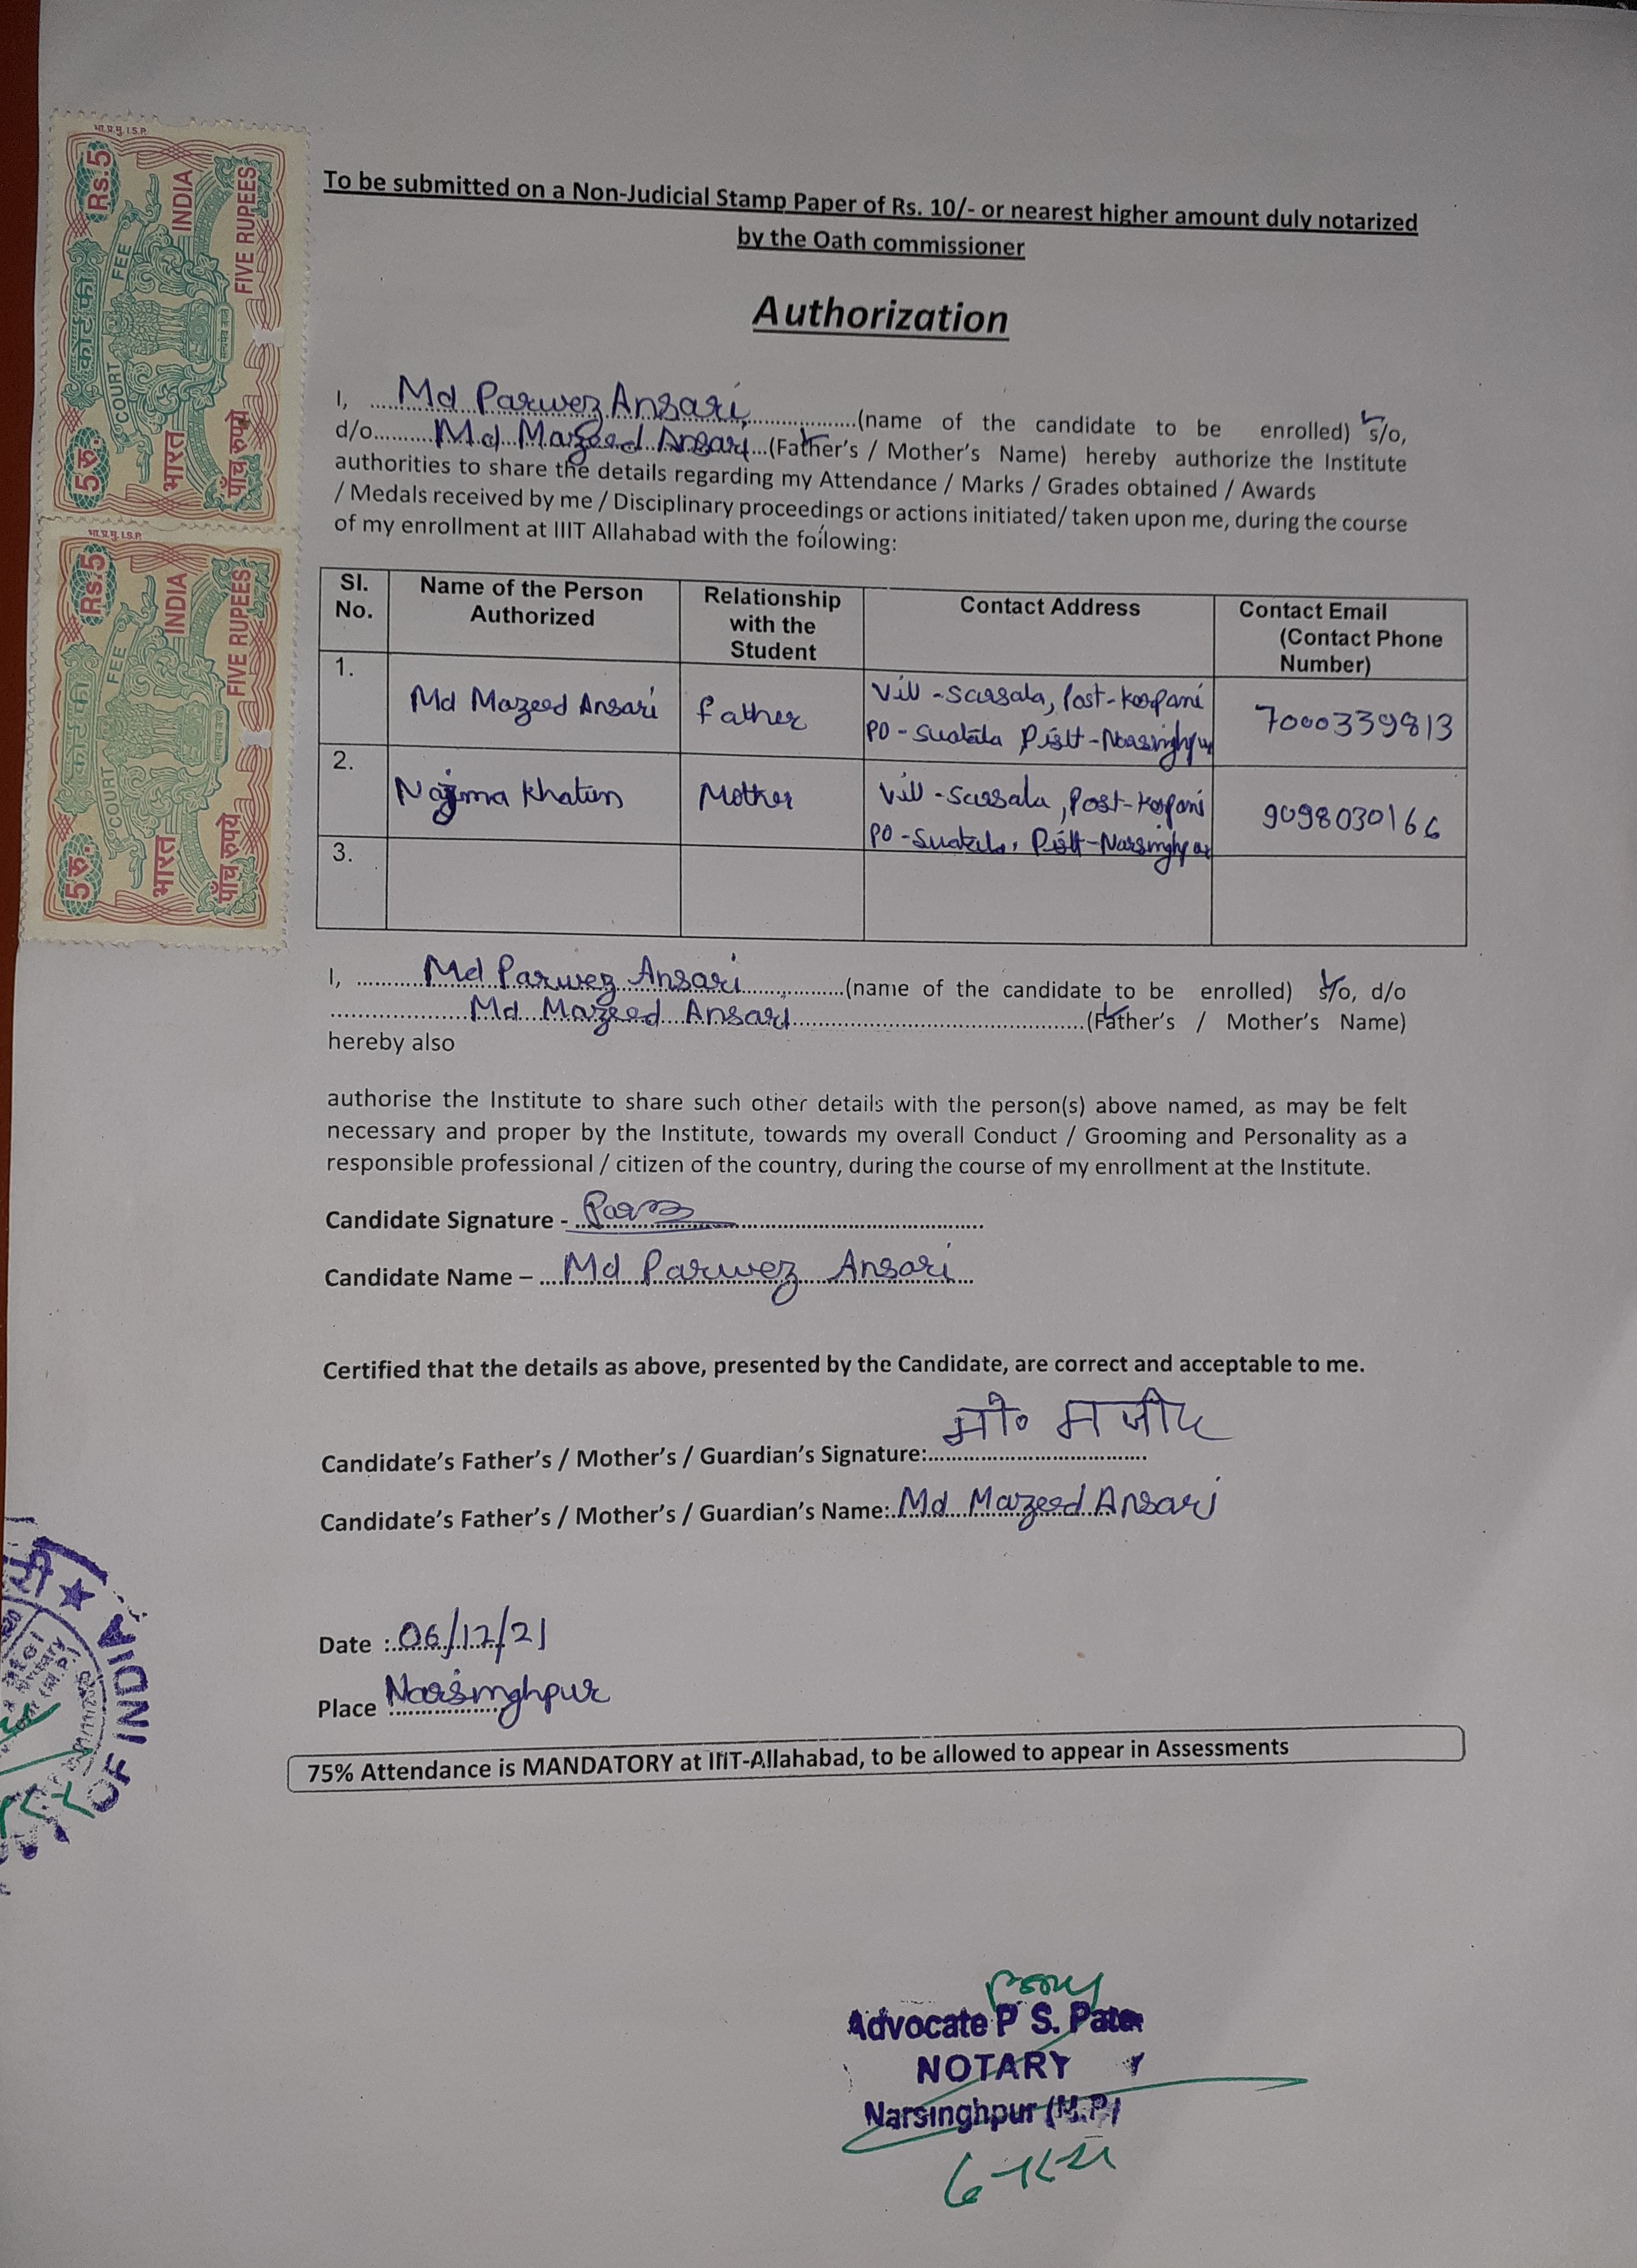 भा.प्र.मु. I.S.P.
Rs.5
INDIA
FIVE RUPEES
कोर्ट फी
COURT FEE
5 रु.
भारत
पाँच रुपये
भा.प्र.मु. I.S.P.
Rs.5
INDIA
FIVE RUPEES
कोर्ट फी
COURT FEE
5 रु.
भारत
पाँच रुपये
To be submitted on a Non-Judicial Stamp Paper of Rs. 10/- or nearest higher amount duly notarized
by the Oath commissioner
Authorization
I, Md Parwez Ansari (name of the candidate to be enrolled) s/o,
d/o Md Mazeed Ansari (Father's / Mother's Name) hereby authorize the Institute
authorities to share the details regarding my Attendance / Marks / Grades obtained / Awards
/ Medals received by me / Disciplinary proceedings or actions initiated/ taken upon me, during the course
of my enrollment at IIIT Allahabad with the following:
Sl. No. Name of the Person Authorized Relationship with the Student Contact Address Contact Email (Contact Phone Number)
1. Md Mazeed Ansari Father Vill - Sarsala, Post - Korpani 7000339813
PO - Suatala Distt - Narsinghpur
2. Najma Khatun Mother Vill - Sarsala, Post - Korpani 9098030166
PO - Suatala, Distt - Narsinghpur
3.
I, Md Parwez Ansari (name of the candidate to be enrolled) s/o, d/o
Md Mazeed Ansari (Father's / Mother's Name)
hereby also
authorise the Institute to share such other details with the person(s) above named, as may be felt
necessary and proper by the Institute, towards my overall Conduct / Grooming and Personality as a
responsible professional / citizen of the country, during the course of my enrollment at the Institute.
Candidate Signature - Parwez
Candidate Name – Md Parwez Ansari
Certified that the details as above, presented by the Candidate, are correct and acceptable to me.
Candidate's Father's / Mother's / Guardian's Signature: मो० मजीद
Candidate's Father's / Mother's / Guardian's Name: Md Mazeed Ansari
Date : 06/12/21
Place Narsinghpur
75% Attendance is MANDATORY at IIIT-Allahabad, to be allowed to appear in Assessments
OF INDIA
Advocate P S. Patel
NOTARY
Narsinghpur (M.P)